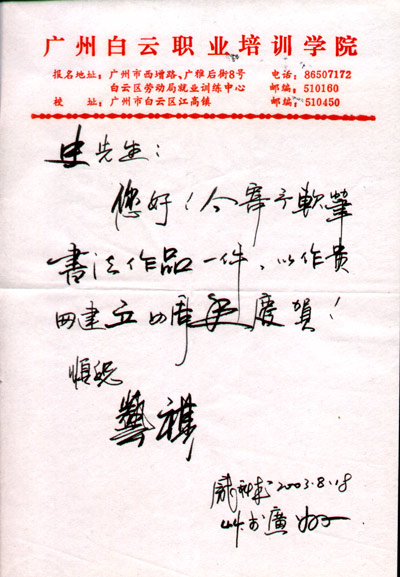 广州白云职业培训学院
报名地址：广州市西增路、广雅后街8号 电话：86507172
白云区劳动局就业训练中心 邮编：510160
校 址：广州市白云区江高镇 邮编：510450
史先生：
您好！今寄予軟筆
書法作品一件，以作贵
网建立四周年慶賀！
順祝
藝祺
2003.8.18
廣